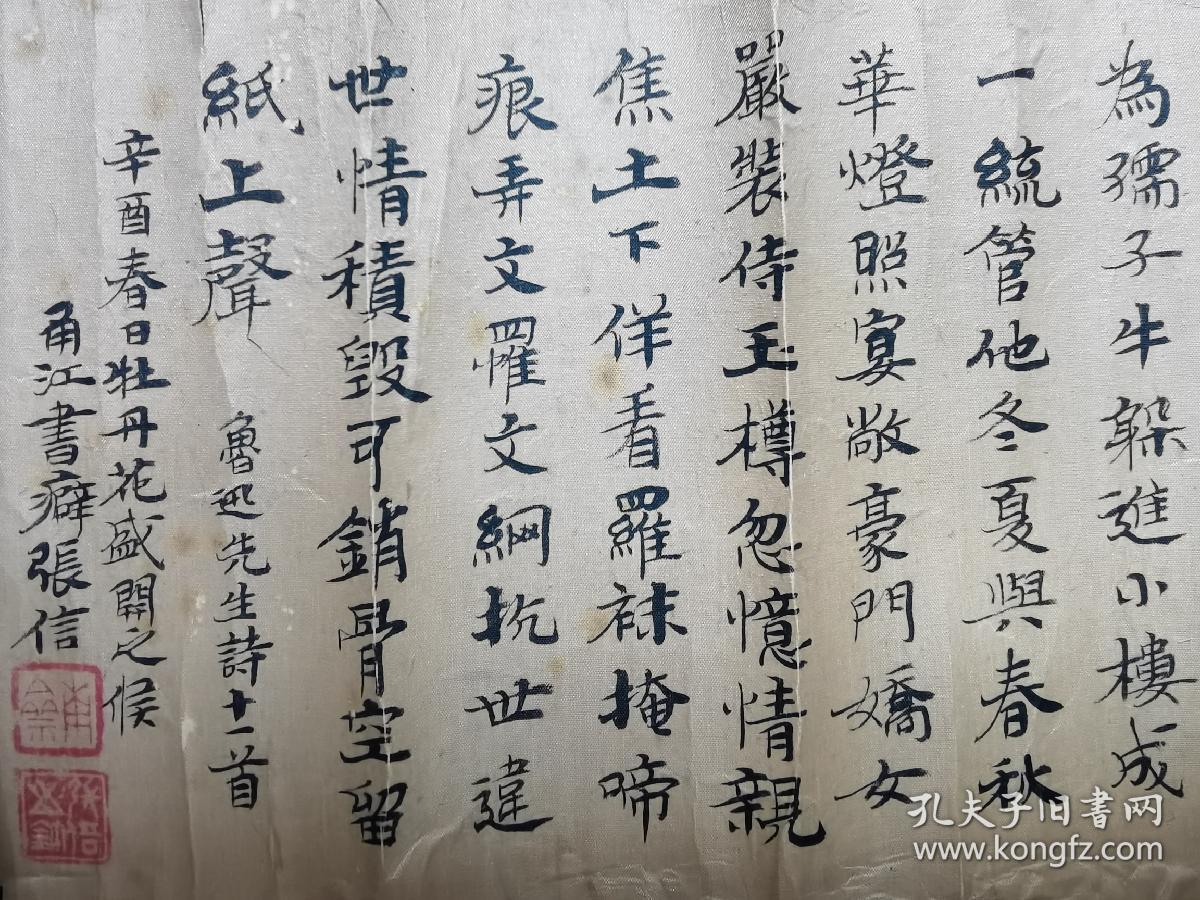 為孺子牛躲進小樓成
一統管他冬夏與春秋
華燈照宴敞豪門嬌女
嚴裝侍玉樽忽憶情親
焦土下佯看羅襪掩啼
痕弄文罹文網抗世違
世情積毀可銷骨空留
紙上聲
魯迅先生詩十一首
辛酉春日牡丹花盛開之候
甬江書癖張信
孔夫子旧书网
www.kongfz.com